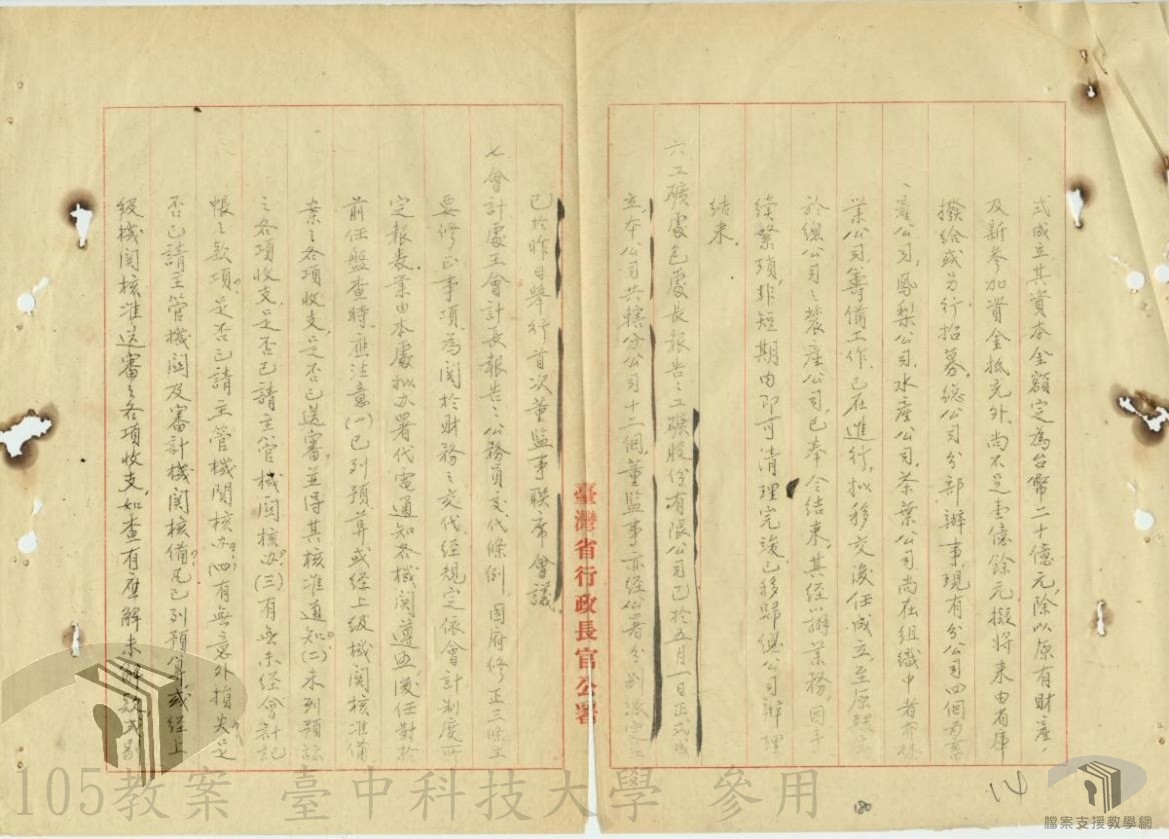 式成立其資本金額定為台幣二十億元，除以原有財產，
及新參加資金抵充外，尚不足壹億餘元，擬將來由省庫
撥給或另行招募，總公司分部辦事，現有分公司四個為畜
產公司，鳳梨公司，水產公司，茶葉公司，尚在組織中者有林
業公司，籌備工作，已在進行，擬移交後任成立，至原
於總公司之農產公司已奉令結束，其經辦業務因手
續繁瑣，非短期內即可清理完竣，已移歸總公司辦理
結束。
六、工礦處包處長報告：工礦股份有限公司已於五月一日正式成
立，本公司共轄分公司十二個，董監事亦經公署分別派定，
臺灣省行政長官公署
已於昨日舉行首次董監事聯席會議。
七、會計處王會計長報告：公務員交代條例，國府修正三條，主
要修正事項，為關於財務之交代，經規定依會計制度所
定報表，業由本處擬办署代電通知各機關遵照，後任對於
前任盤查時，應注意(一)已列預算或經上級機關核准備
案之各項收支，是否已送審，並得其核准通知？(二)未列預算
之各項收支，是否已請主管機關核办？(三)有無未經會計記
帳之款項？是否已請主管機關核办？(四)有無意外損失？是
否已請主管機關及審計機關核備？凡已列預算或經上
級機關核准送審之各項收支，如查有應解未解款或
14
180
105教案 臺中科技大學 參用
檔案支援教學網